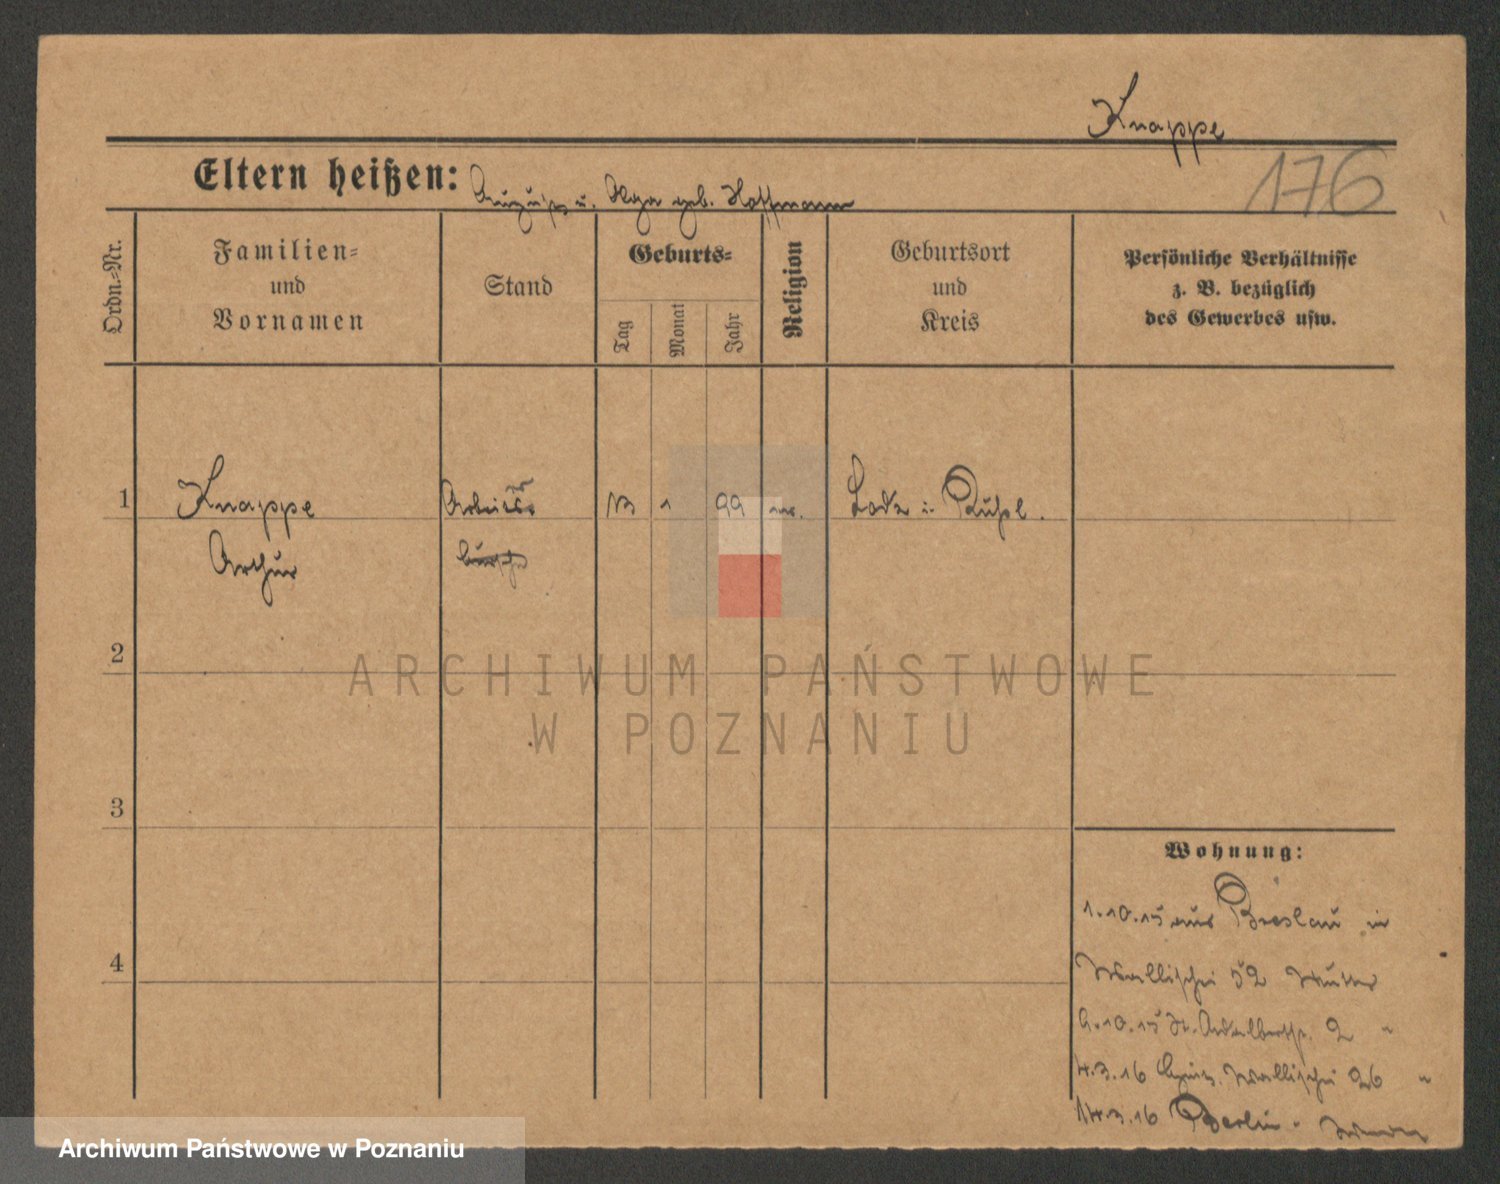 Knappe
176
Eltern heißen: August u. Olga geb. Hoffmann
Ordn.-Nr.
Familien-
und
Vornamen
Stand
Geburts-
Tag
Monat
Jahr
Religion
Geburtsort
und
Kreis
Persönliche Verhältnisse
z. B. bezüglich
des Gewerbes usw.
1
Knappe
Arthur
Arbeits
bursche
13
1
99
ev.
Lodz i. Rußl.
2
3
4
Wohnung:
1.10.15 aus Breslau in
Wallischei 52 Mutter
6.10.15 St. Adalbertstr. 2 "
4.3.16 Wallischei 26 "
14.3.16 Berlin
ARCHIWUM PAŃSTWOWE
W POZNANIU
Archiwum Państwowe w Poznaniu